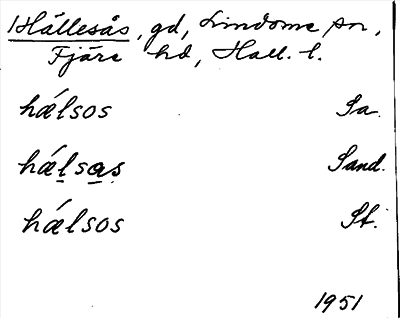 Hällesås, gd, Lindome sn,
Fjäre hd, Hall. l.
hǽlsos Sa.
hǽḷsa̱ṣ Sand.
hǽlsos St.
1951